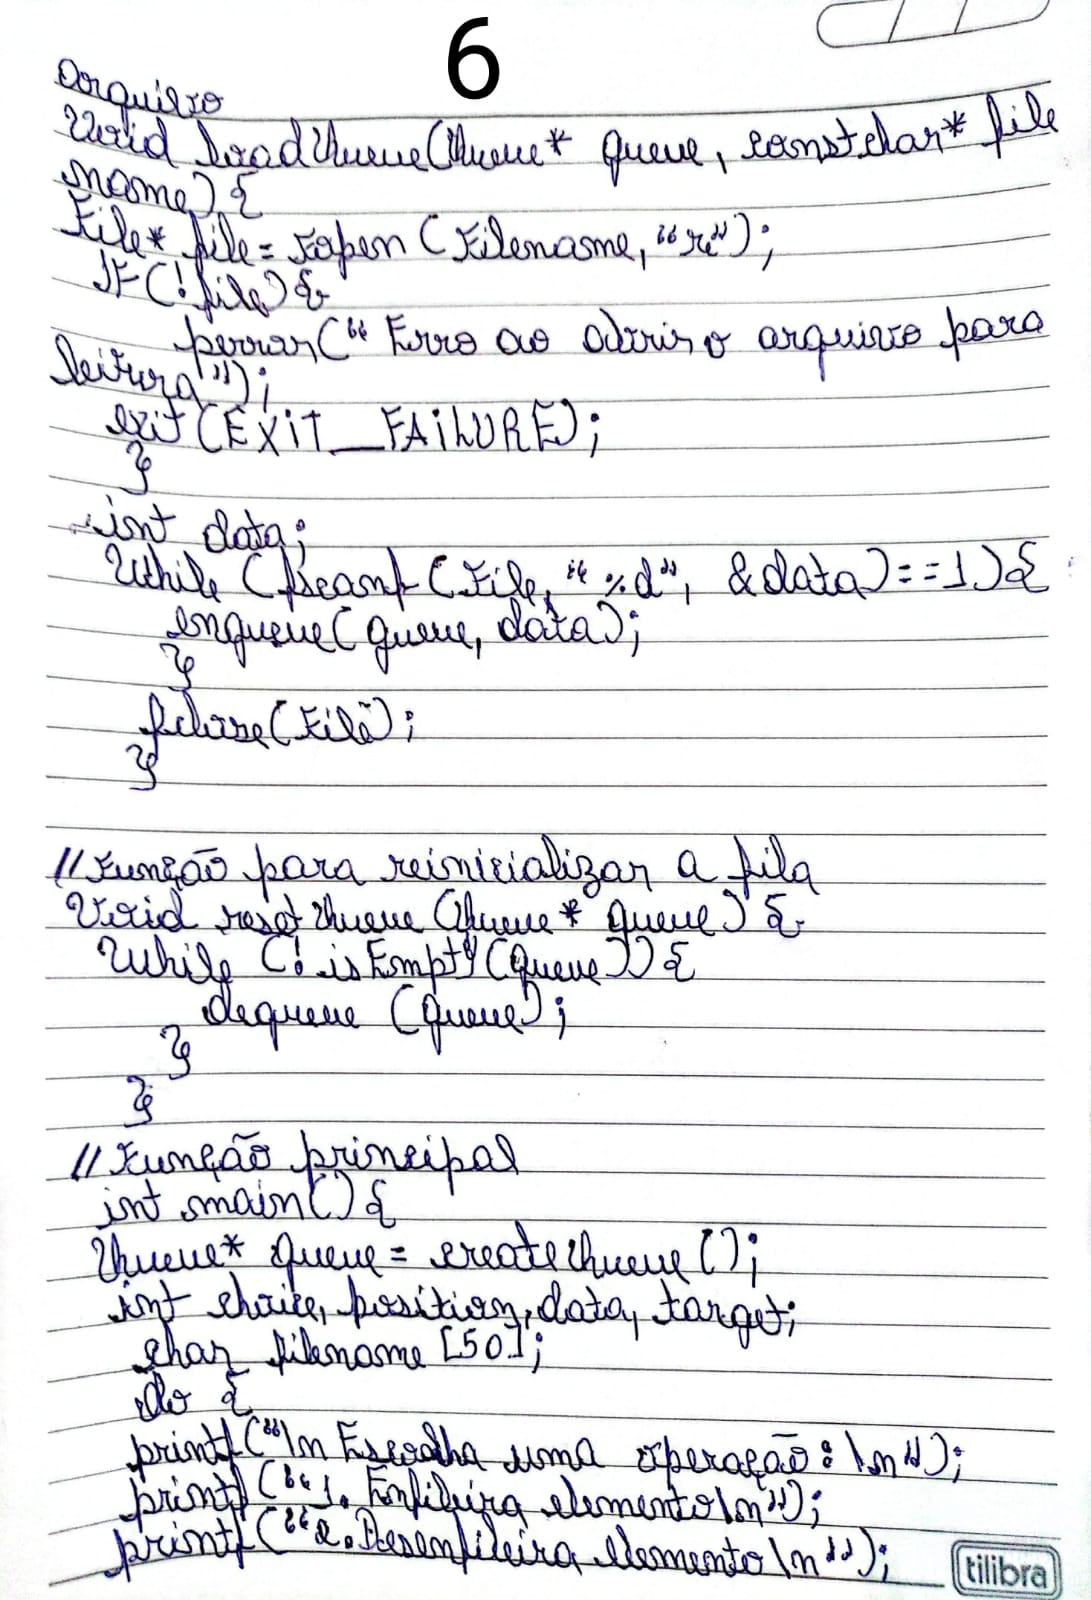 6
arquivo
Void loadQueue(Queue* queue, const char* file
name) {
File* file = Fopen (Filename, "r");
IF (!file) {
perror("Erro ao abrir o arquivo para
leitura");
exit (EXIT_FAILURE);
}
int data;
While (fscanf (File, "%d", &data) == 1) {
enqueue( queue, data);
}
fclose(File);
}
// Função para reinicializar a fila
Void reset Queue (Queue * queue) {
While (! isEmpty (queue)) {
dequeue (queue);
}
}
// Função principal
int main() {
Queue* queue = create Queue ();
int choice, position, data, target;
char filename [50];
do {
printf ("\n Escolha uma operação: \n");
printf ("1. Enfileira elemento\n");
printf ("2. Desenfileira elemento \n");
tilibra